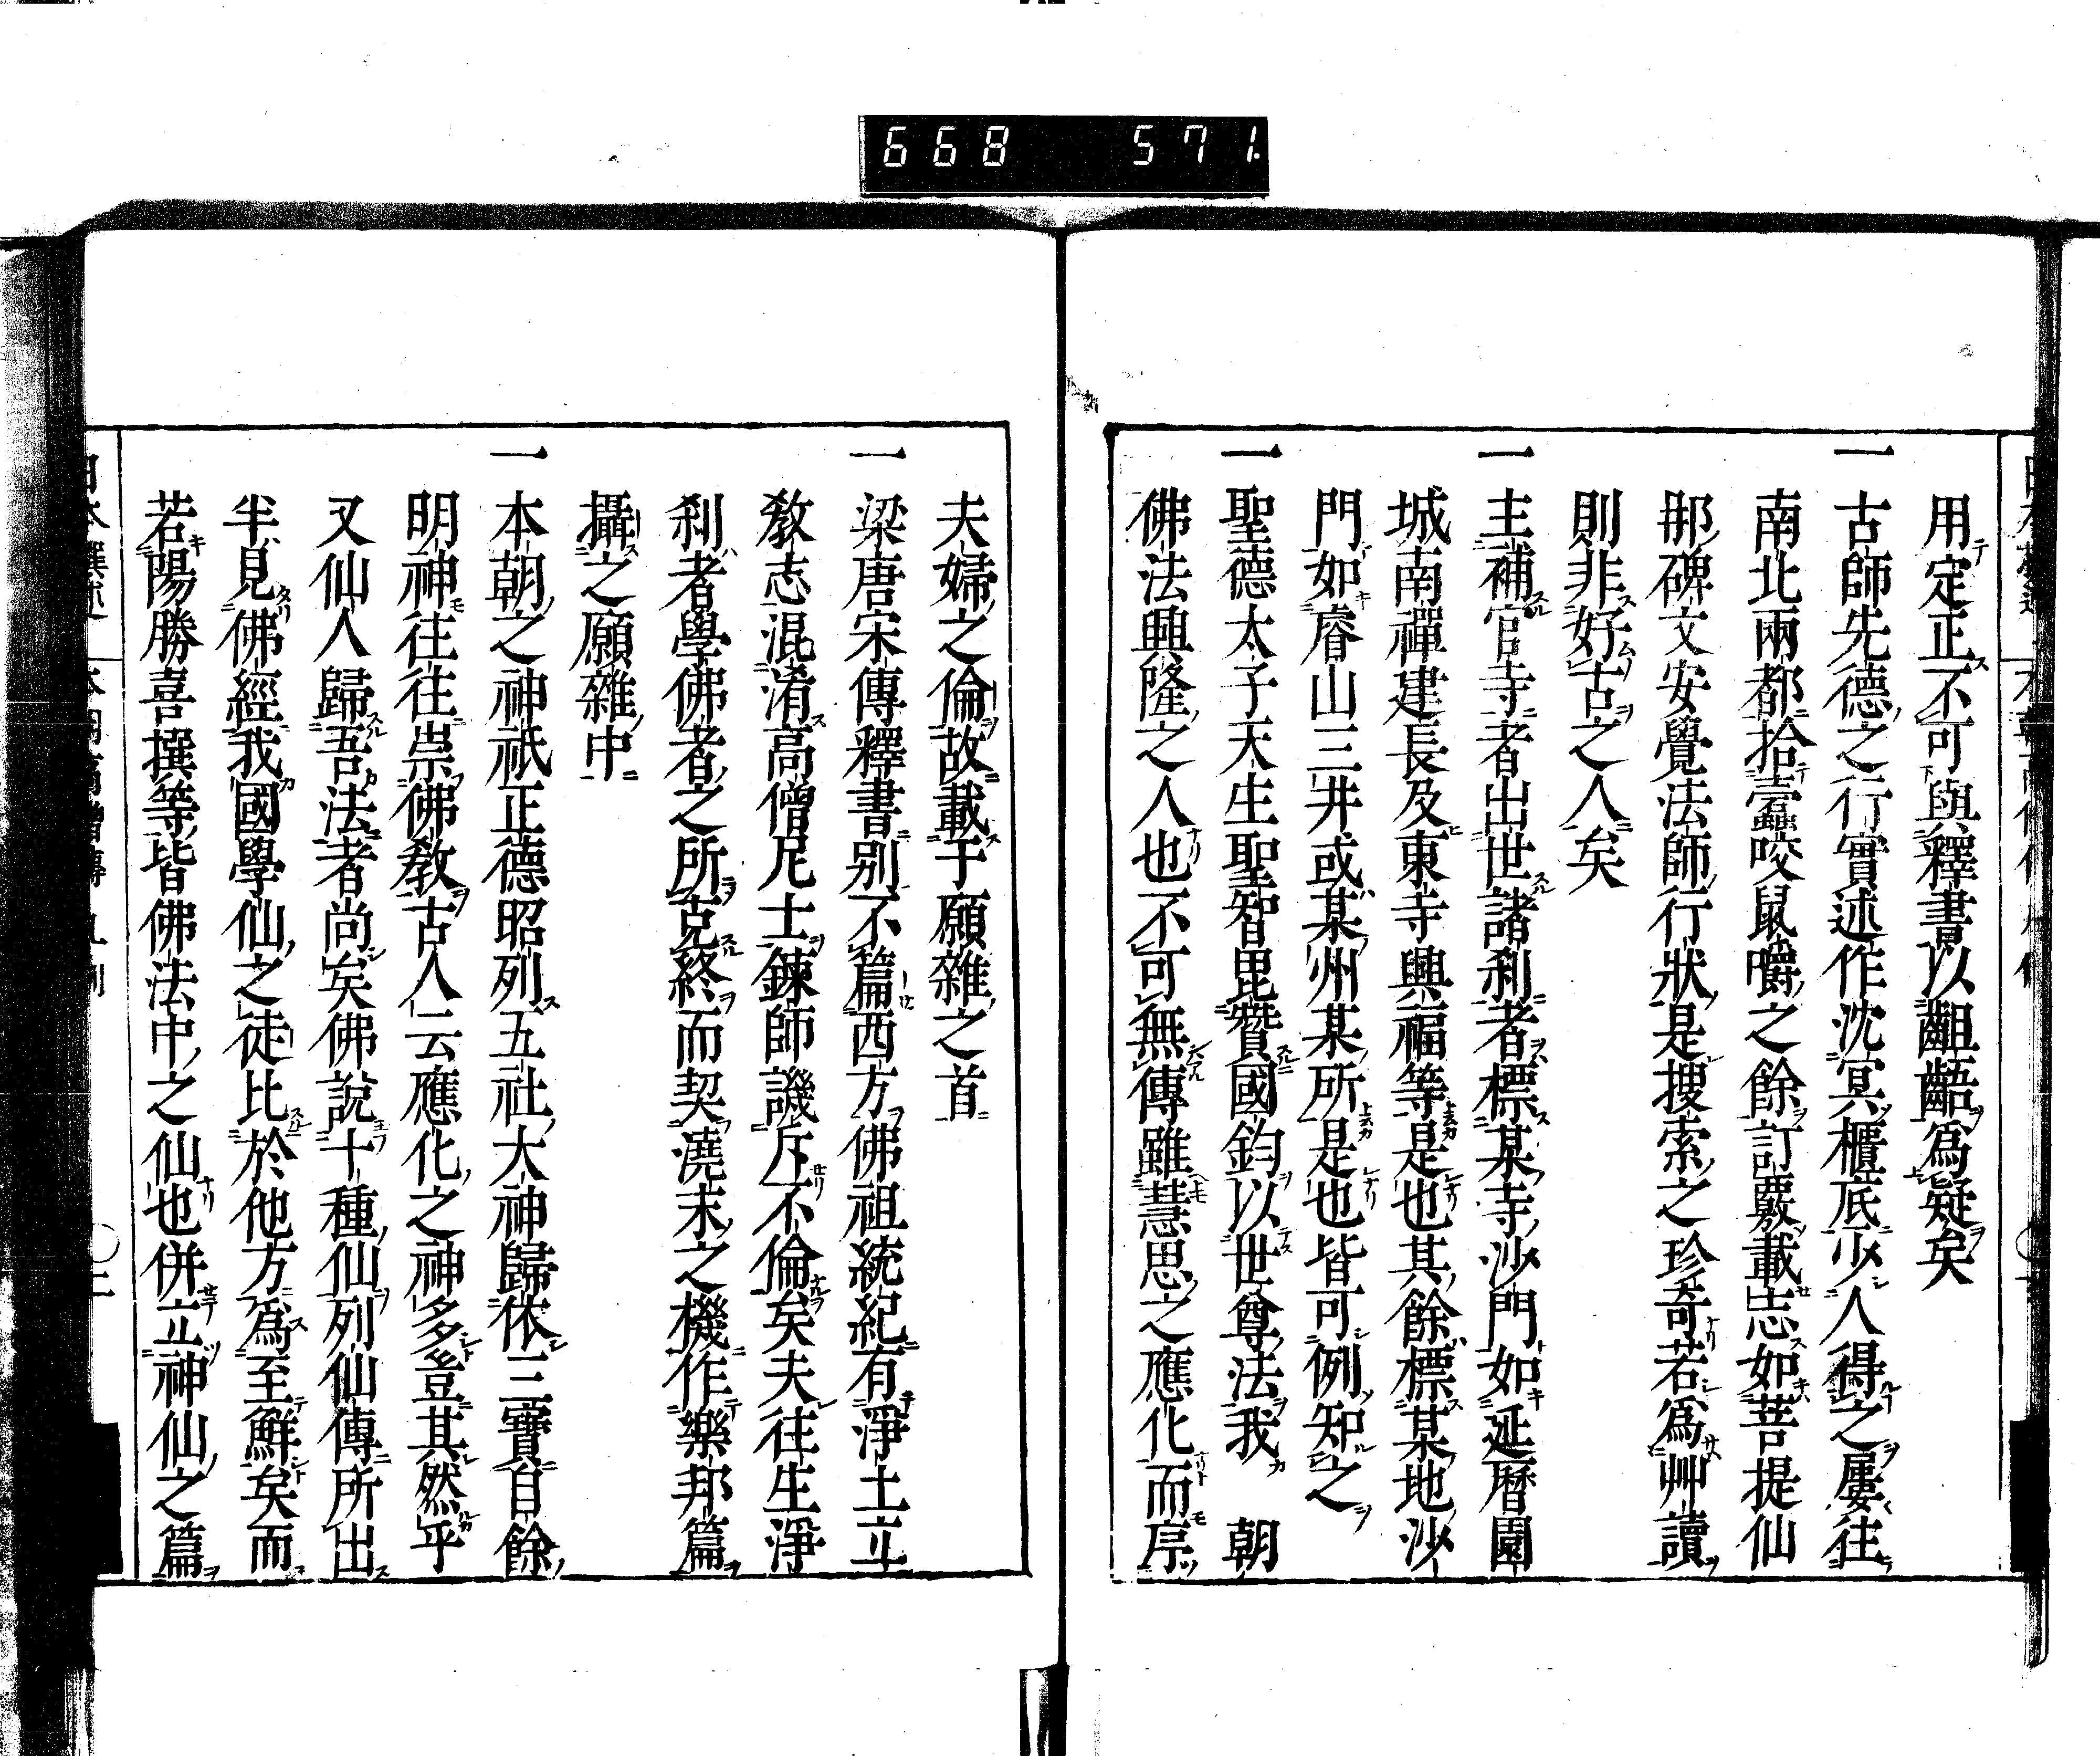 668 571
用定正不可與釋書以齟齬爲疑矣
一古師先德之行實述作沈冥櫃底少人得之屢往
南北兩都拾蠧咬鼠嚼之餘訂覈載志如菩提仙
那碑文安覺法師行狀是搜索之珍奇若爲艸讀
則非好古之人矣
一主補官寺者出世諸刹者標某寺沙門如延曆園
城南禪建長及東寺興福等是也其餘標某地沙
門如睿山三井或某州某所是也皆可例知之
一聖德太子天生聖智毘贊國鈞以世尊法我 朝
佛法興隆之人也不可無傳雖慧思之應化而序
夫婦之倫故載于願雜之首
一梁唐宋傳釋書別不篇西方佛祖統紀有淨土立
敎志混淆高僧尼士鍊師譏斥不倫矣夫往生淨
刹者學佛者之所克終而契澆末之機作樂邦篇
攝之願雜中
一本朝之神祇正德昭列五社大神歸依三寶自餘
明神往往崇佛敎古人云應化之神多豈其然乎
又仙人歸吾法者尚矣佛說十種仙列仙傳所出
半見佛經我國學仙之徒比於他方爲至鮮矣而
若陽勝喜撰等皆佛法中之仙也併立神仙之篇